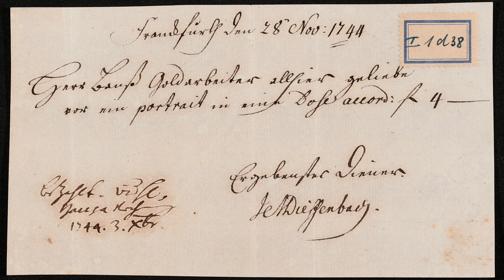 Franckfurth den 28 Nov: 1744
I 1 d 38
Herr Banß Goldarbeiter allhier geliebe
vor ein portrait in eine Dose accord: f 4 —
Ergebenster Diener
Dieffenbach.
1744. 3. Xbr